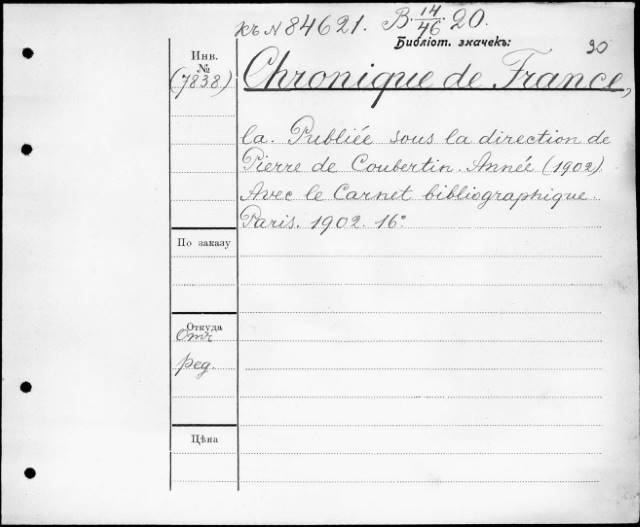 къ N 84621. B. 14/46 20.
Библіот. значекъ: 30
Инв.
№
(7838) Chronique de France,
la. Publiée sous la direction de
Pierre de Coubertin. Année (1902)
Avec le Carnet bibliographique.
Paris. 1902. 16º
По заказу
Откуда
Отъ
ред.
Цѣна